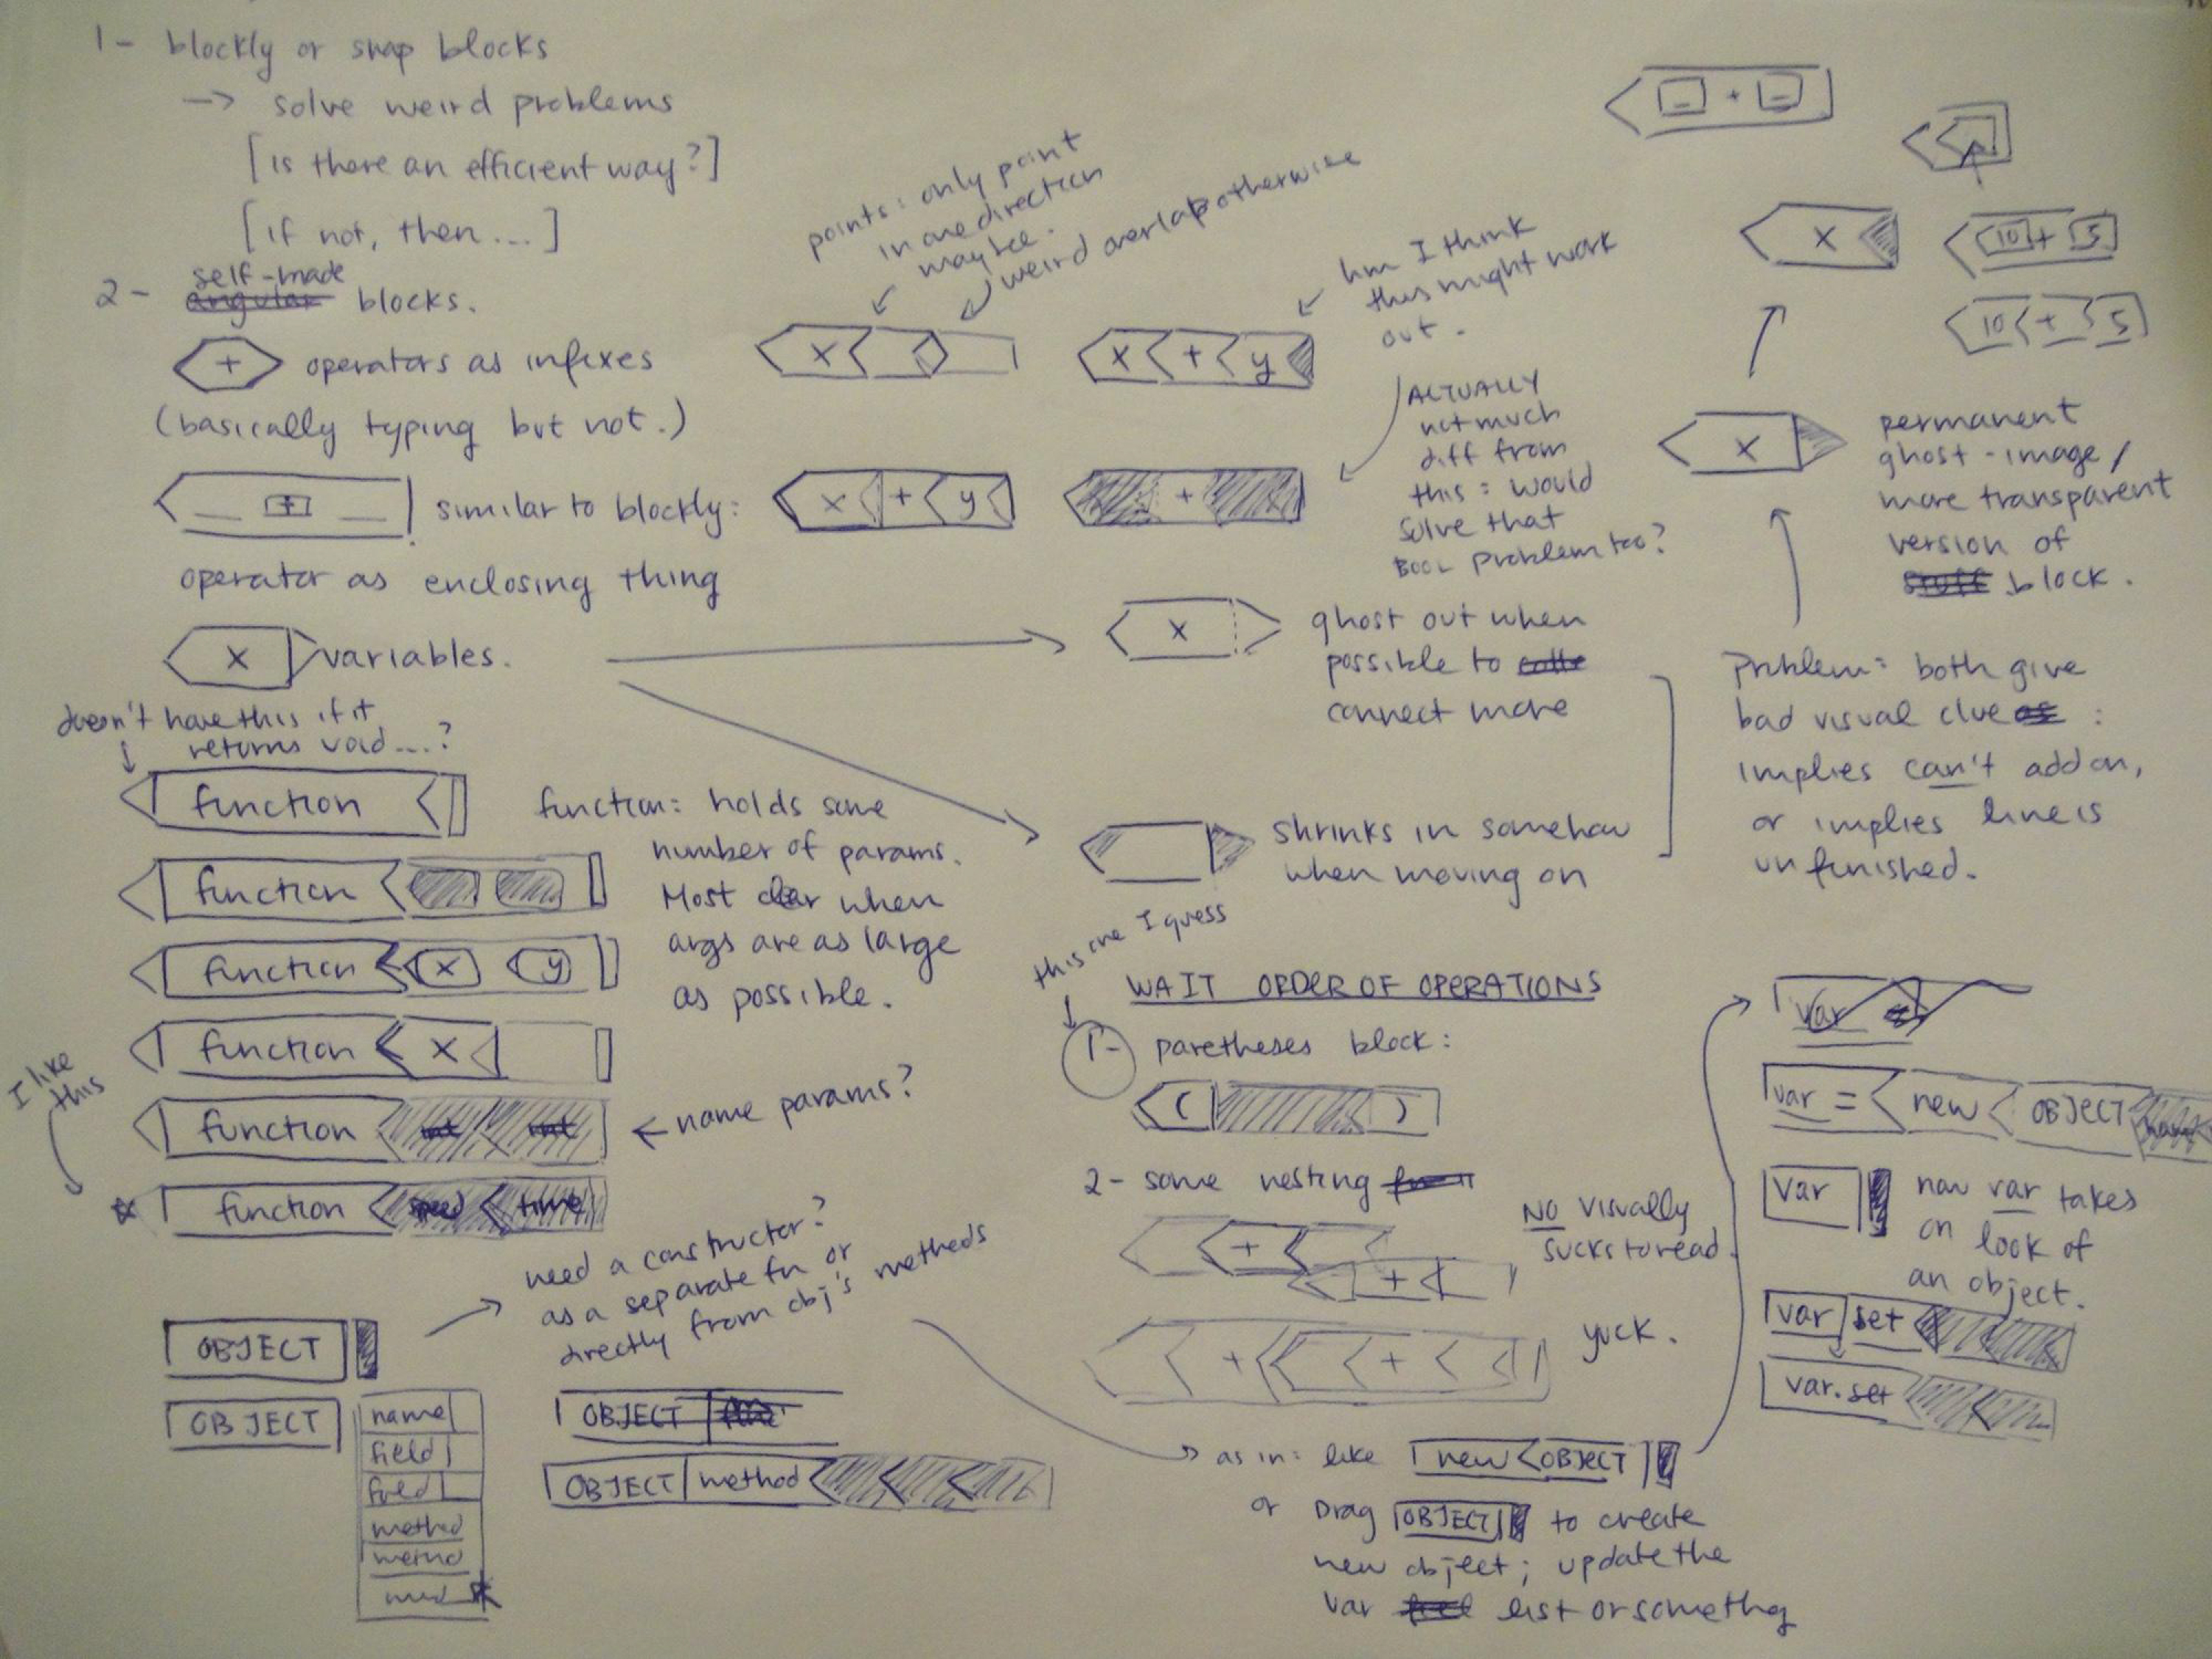 1- blockly or snap blocks
-> solve weird problems
[is there an efficient way?]
[if not, then...]
2- self-made
angular blocks.
+ operators as infixes
(basically typing but not.)
_ + _ similar to blockly:
operator as enclosing thing
x variables.
doesn't have this if it
returns void....?
function
function
function x y
function x
function int int
← name params?
I like
this
function speed time
function: holds some
number of params.
Most clear when
args are as large
as possible.
OBJECT
OBJECT
name
field
field
method
method
need a constructor?
as a separate fn or
directly from obj's methods
OBJECT
OBJECT method
points: only point
in one direction
maybe.
weird overlap otherwise
x
x + y
hm I think
this might work
out.
x + y
+
ACTUALLY
not much
diff from
this: would
solve that
BOOL problem too?
x
ghost out when
possible to
connect more
shrinks in somehow
when moving on
Problem: both give
bad visual clue :
implies can't add on,
or implies line is
unfinished.
x
permanent
ghost-image/
more transparent
version of
stuff block.
x
_ + _
10 + 5
10 + 5
this one I guess
WAIT ORDER OF OPERATIONS
1- paretheses block:
( )
2- some nesting
+
+
NO visually
sucks to read.
+ +
yuck.
as in: like new OBJECT
or Drag OBJECT to create
new object; update the
var list or somethg
var
var = new OBJECT
var
now var takes
on look of
an object.
var set
var.set